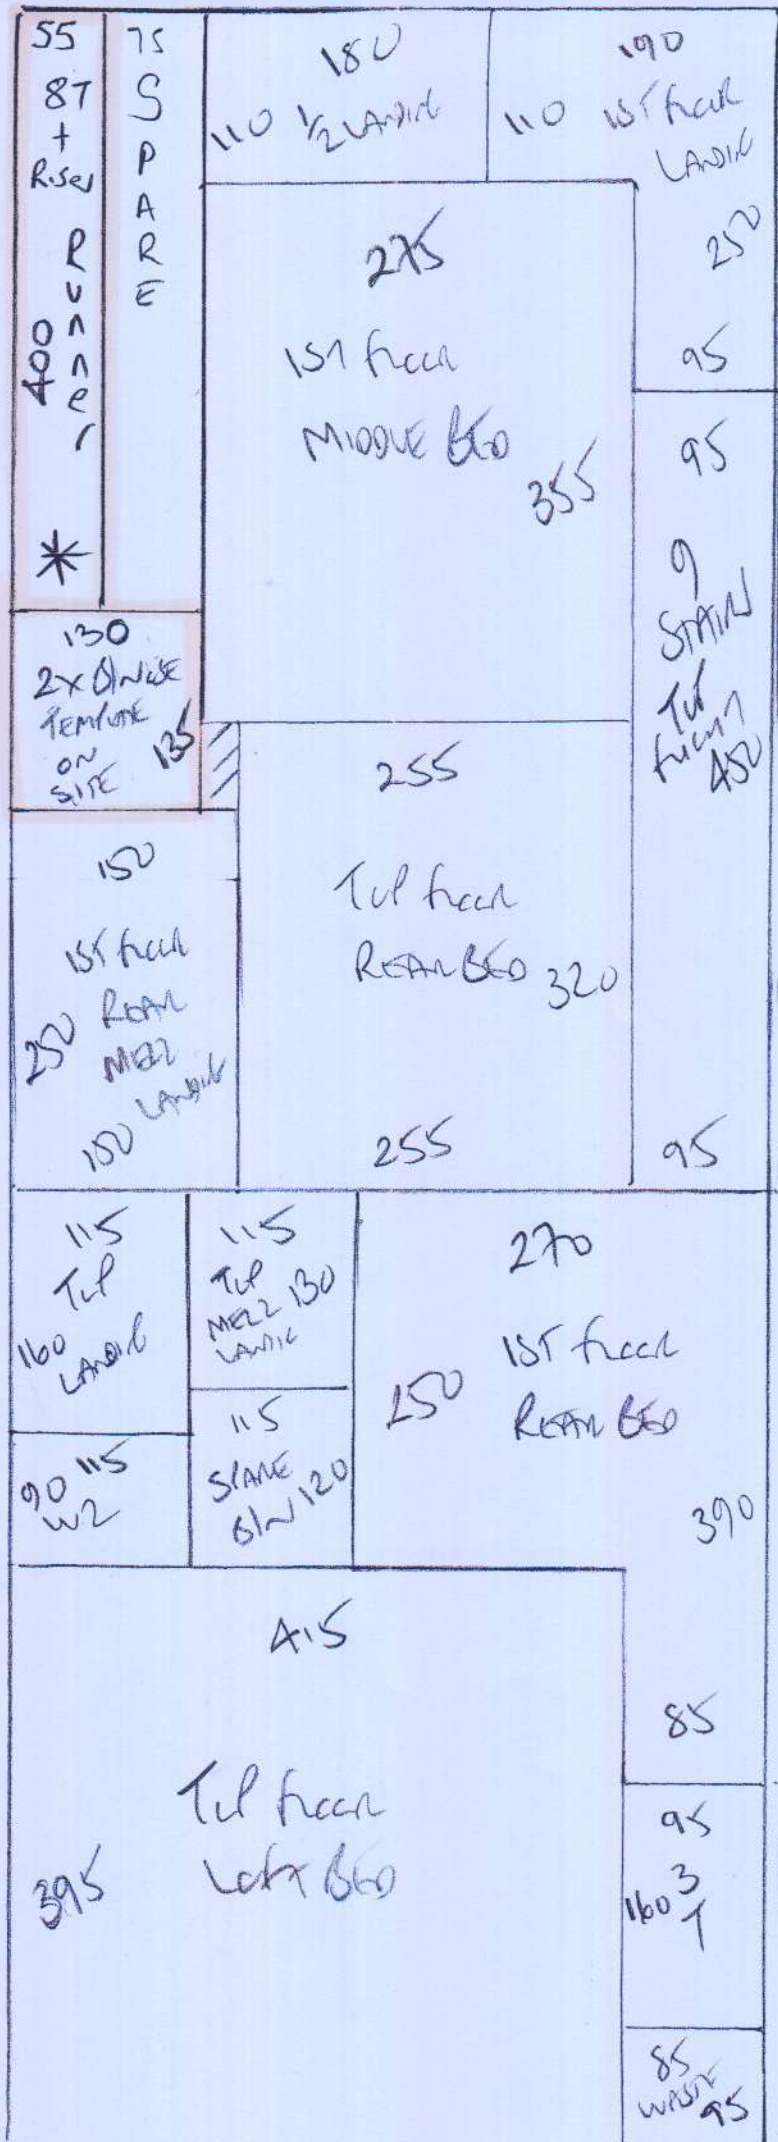 55
8T
+
Riser
Runner
400
*
75
SPARE
180
110 1/2 LANDING
190
110 1ST Floor
LANDING
250
95
275
1ST Floor
MIDDLE BED
355
95
9
STAIRS
TOP
450
95
130
2X
TEMPLATE
ON
SITE 135
150
1ST Floor
REAR
250 MEZZ
LANDING
150
255
TOP Floor
REAR BED 320
255
115
TOP
160 LANDING
115
TOP
MEZZ 130
LANDING
270
1ST Floor
250 REAR BED
390
85
90 115
W2
115
SPARE
120
415
TOP Floor
BED
395
95
160 3
T
85
WASTE
95